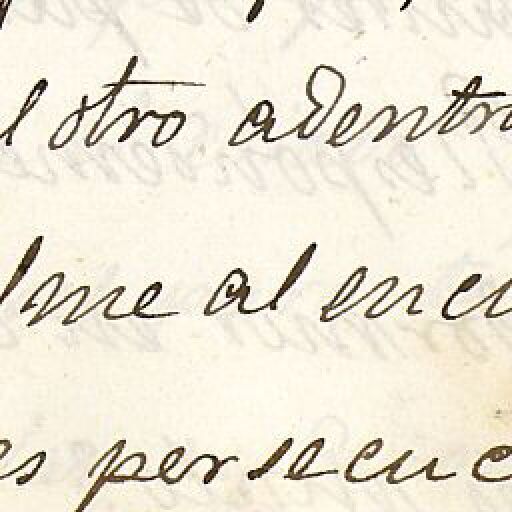 l otro adentr
lme al encu
es persecuc